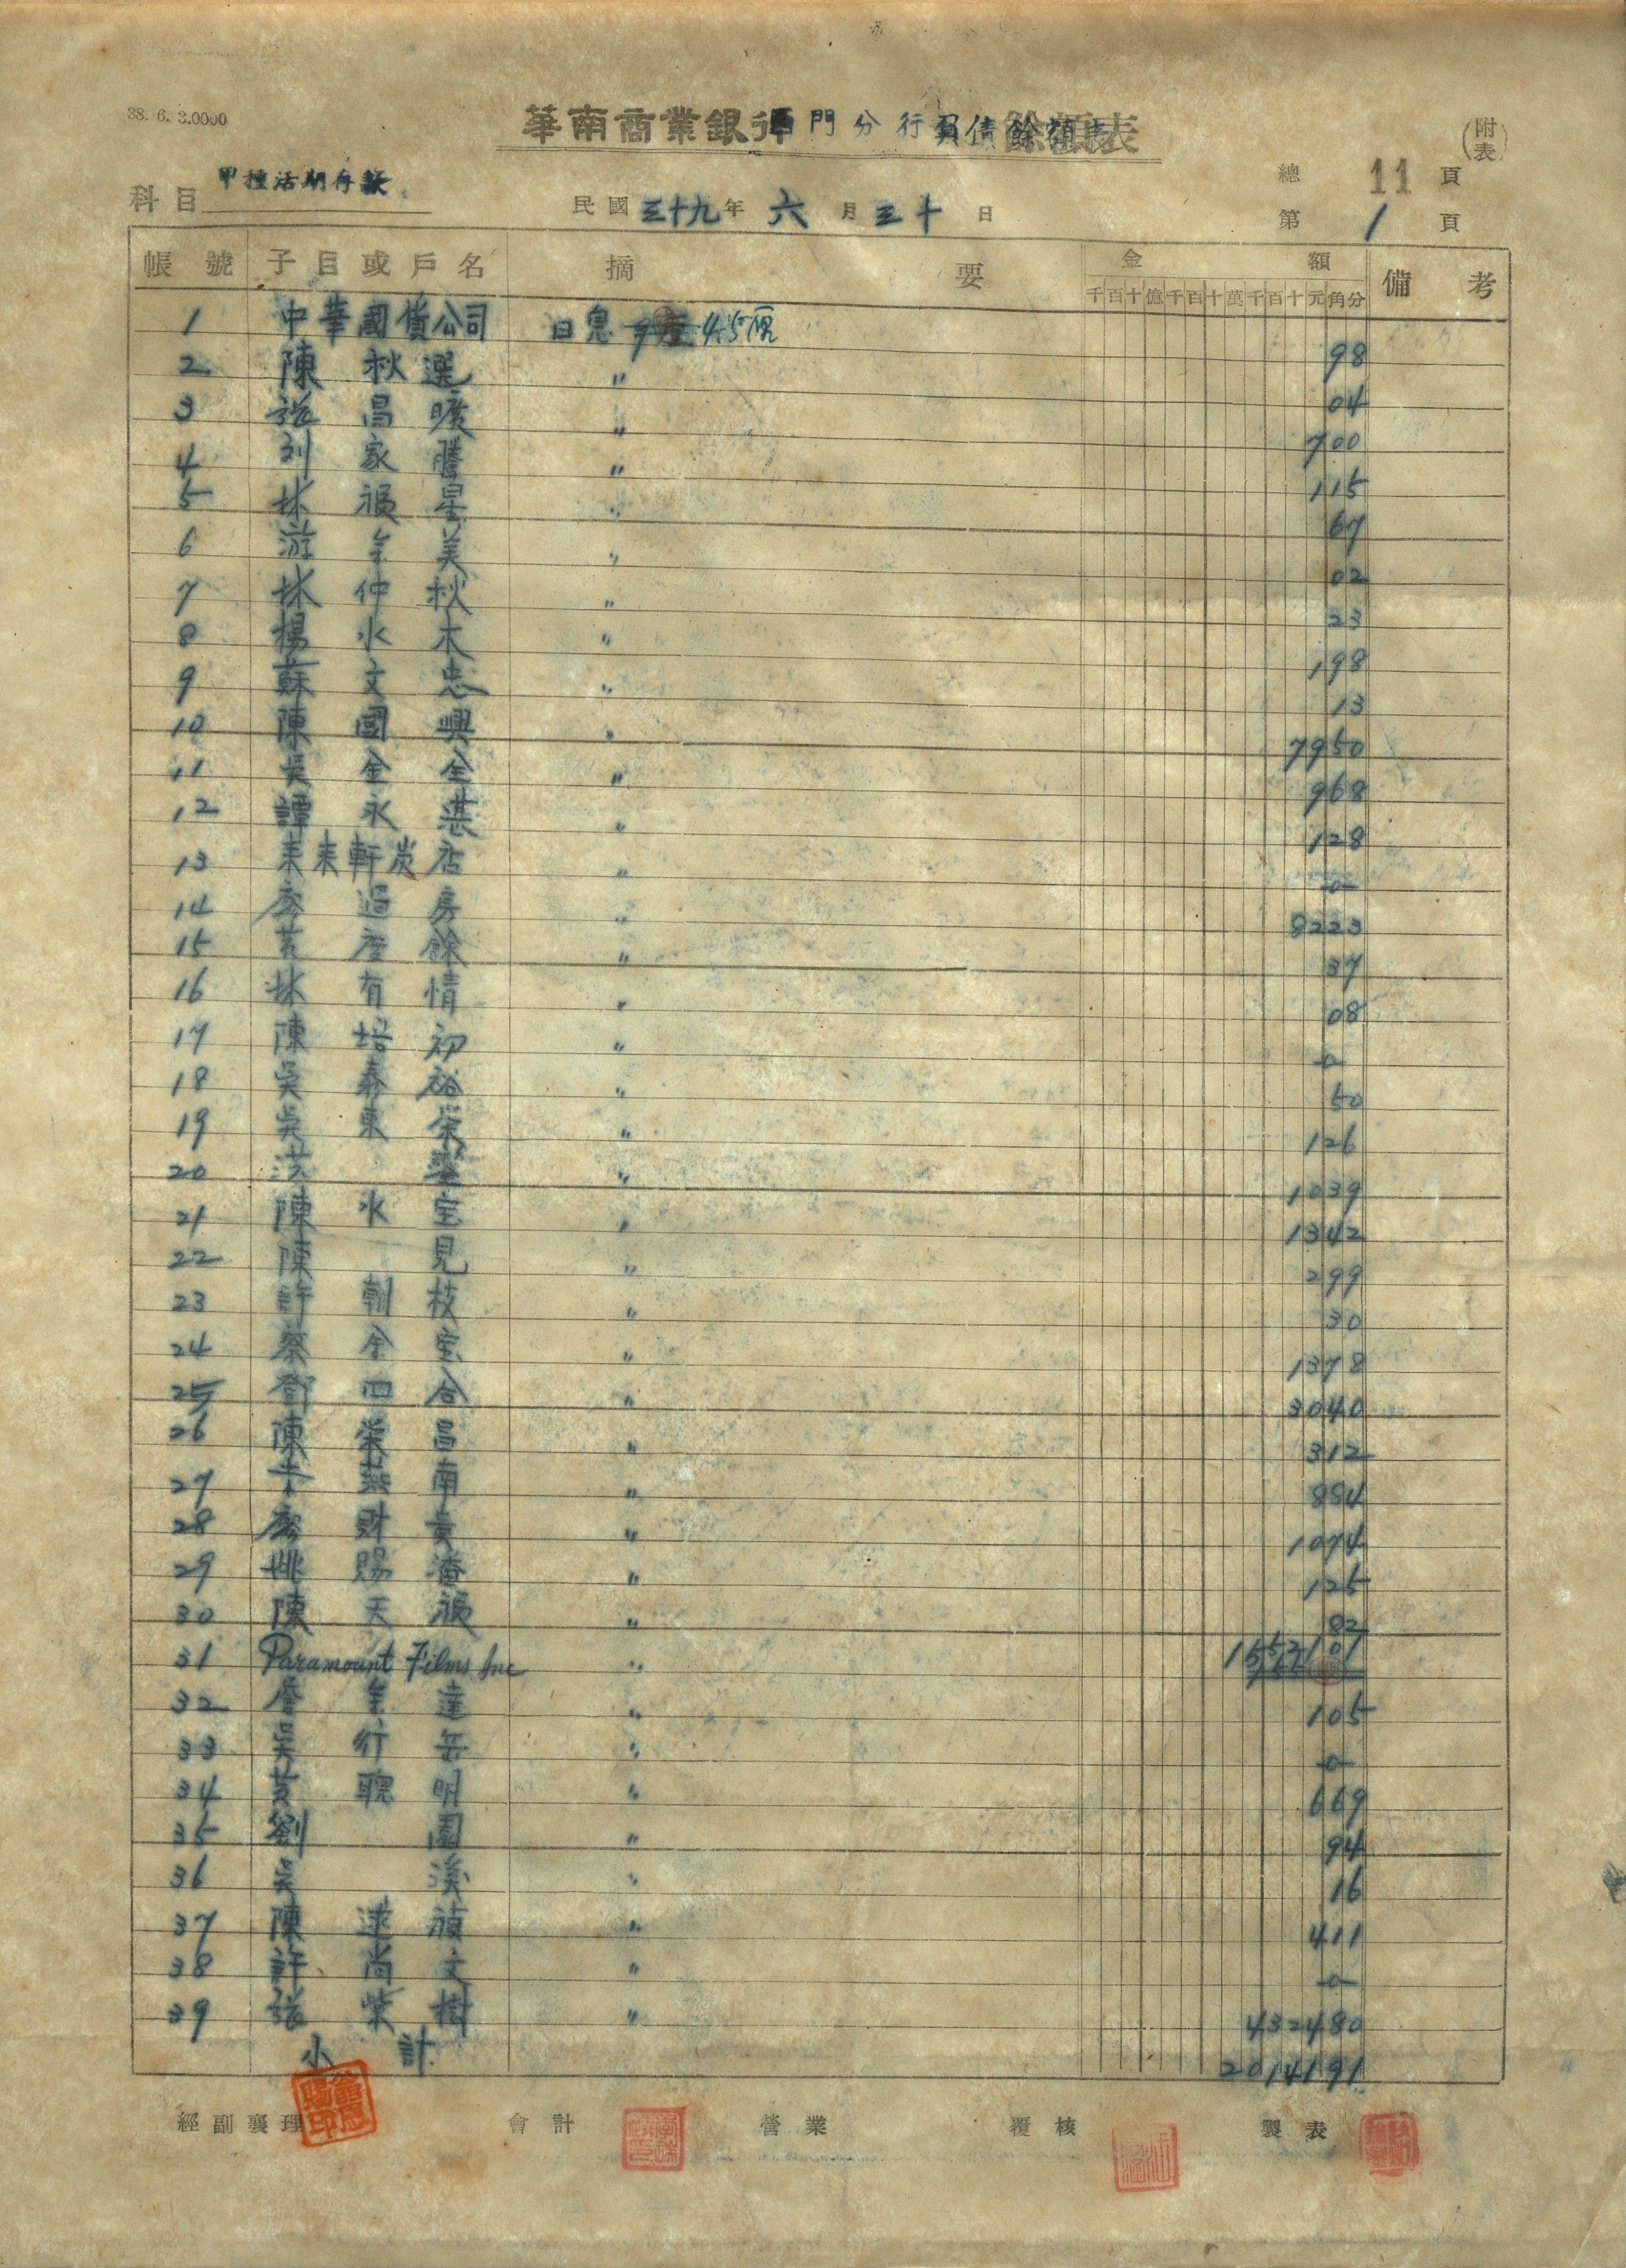 38. 6. 3.0000
華南商業銀行西門分行負債餘額表
(附表)
總 11 頁
科目 甲種活期存款
民國三十九年 六 月三十 日
第 1 頁
帳號 子目或戶名 摘要 金額 備考
千百十億千百十萬千百十元角分
1 中華國貨公司 日息 4.5厘 98
2 陳秋選 〃 04
3 張昌 〃 700
4 刘家騰 〃 115
5 林福星 〃 67
6 游金美 〃 02
7 林仲秋 〃 23
8 楊水木 〃 198
9 蘇文忠 〃 13
10 陳國興 〃 7950
11 吳金全 〃 968
12 譚永湛 〃 128
13 軒炭店 〃 0
14 廖過房 〃 8223
15 黃慶餘 〃 37
16 林有情 〃 08
17 陳培初 〃 0
18 吳泰裕 〃 50
19 吳東榮 〃 126
20 洪 〃 1039
21 陳水宝 〃 1342
22 陳見 〃 299
23 許朝枝 〃 30
24 蔡金宝 〃 1378
25 鄧四合 〃 3040
26 陳榮昌 〃 312
27 燕南 〃 884
28 廖財貴 〃 1074
29 姚賜 〃 125
30 陳天福 〃 82
31 Paramount Films Inc 〃
32 詹金達 〃 105
33 吳行岳 〃 0
34 黃聰明 〃 669
35 劉園 〃 94
36 吳溪 〃 16
37 陳逑禎 〃 411
38 許尚文 〃 0
39 張紫樹 〃 432480
小計 2014191
經副襄理 會計 營業 覆核 製表